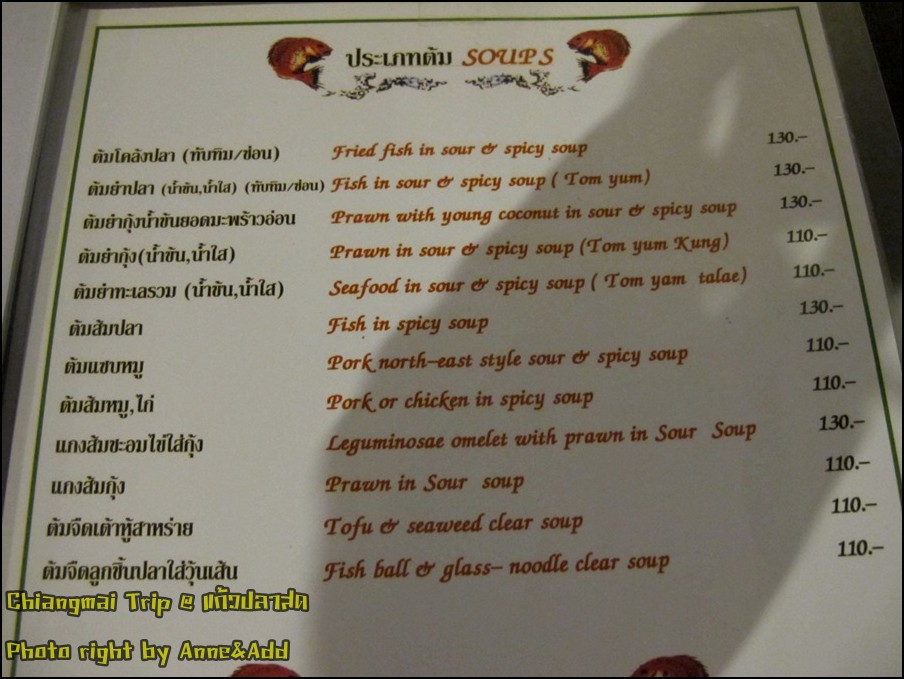 ประเภทต้ม SOUPS
ต้มโคล้งปลา (ทับทิม/ช่อน) Fried fish in sour & spicy soup 130.-
ต้มยำปลา (น้ำข้น,น้ำใส) (ทับทิม/ช่อน) Fish in sour & spicy soup ( Tom yum) 130.-
ต้มยำกุ้งน้ำข้นยอดมะพร้าวอ่อน Prawn with young coconut in sour & spicy soup 130.-
ต้มยำกุ้ง(น้ำข้น,น้ำใส) Prawn in sour & spicy soup (Tom yum Kung) 110.-
ต้มยำทะเลรวม (น้ำข้น,น้ำใส) Seafood in sour & spicy soup ( Tom yam talae) 110.-
ต้มส้มปลา Fish in spicy soup 130.-
ต้มแซบหมู Pork north-east style sour & spicy soup 110.-
ต้มส้มหมู,ไก่ Pork or chicken in spicy soup 110.-
แกงส้มชะอมไข่ใส่กุ้ง Leguminosae omelet with prawn in Sour Soup 130.-
แกงส้มกุ้ง Prawn in Sour soup 110.-
ต้มจืดเต้าหู้สาหร่าย Tofu & seaweed clear soup 110.-
ต้มจืดลูกชิ้นปลาใส่วุ้นเส้น Fish ball & glass- noodle clear soup 110.-
Chiangmai Trip @ แก้วปลาสด
Photo right by Anne&Add